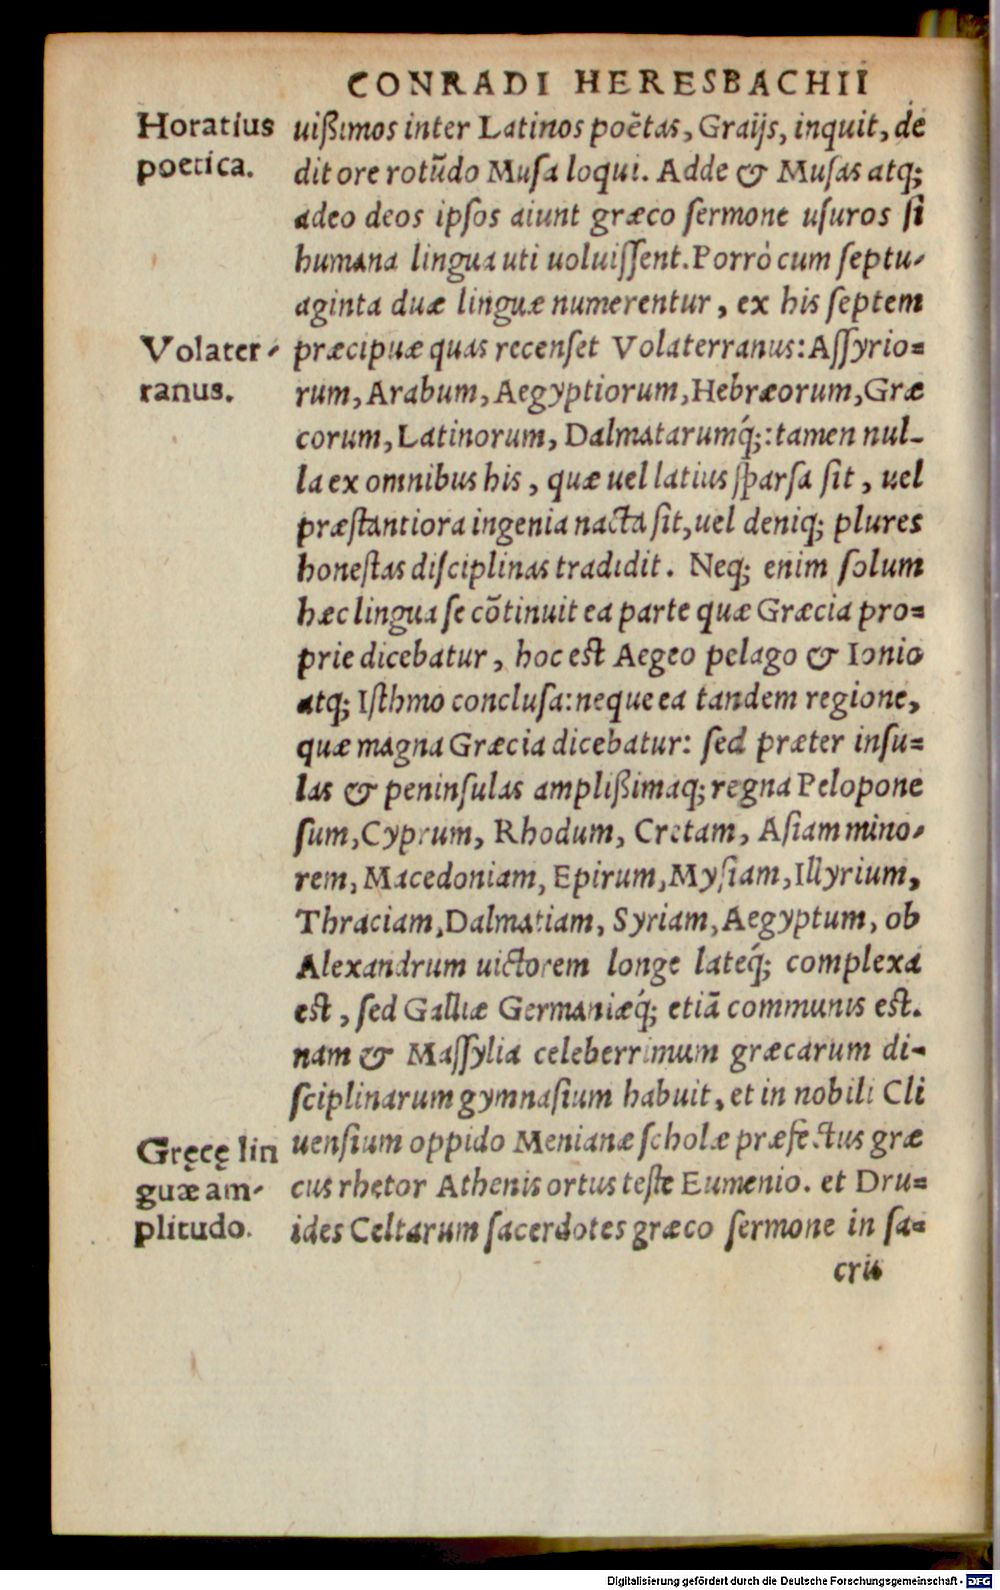 CONRADI HERESBACHII
Horatius
poetica.
uißimos inter Latinos poëtas, Graijs, inquit, de
dit ore rotūdo Musa loqui. Adde & Musas atq;
adeo deos ipsos aiunt græco sermone usuros si
humana lingua uti uoluissent. Porrò cum septu-
aginta duæ linguæ numerentur, ex his septem
Volater-
ranus.
præcipuæ quas recenset Volaterranus: Assyrio=
rum, Arabum, Aegyptiorum, Hebræorum, Græ
corum, Latinorum, Dalmatarumq́;: tamen nul-
la ex omnibus his, quæ uel latius sparsa sit, uel
præstantiora ingenia nacta sit, uel deniq; plures
honestas disciplinas tradidit. Neq; enim solum
hæc lingua se cōtinuit ea parte quæ Græcia pro=
prie dicebatur, hoc est Aegeo pelago & Ionio
atq; Isthmo conclusa: neque ea tandem regione,
quæ magna Græcia dicebatur: sed præter insu=
las & peninsulas amplißimaq; regna Pelopone
sum, Cyprum, Rhodum, Cretam, Asiam mino-
rem, Macedoniam, Epirum, Mysiam, Illyrium,
Thraciam, Dalmatiam, Syriam, Aegyptum, ob
Alexandrum uictorem longe lateq́; complexa
est, sed Galliæ Germaniæq́; etiā communis est.
nam & Massylia celeberrimum græcarum di-
sciplinarum gymnasium habuit, et in nobili Cli
Gręcę lin
guæ am-
plitudo.
uensium oppido Menianæ scholæ præfectus græ
cus rhetor Athenis ortus teste Eumenio. et Dru=
ides Celtarum sacerdotes græco sermone in sa=
cris
Digitalisierung gefördert durch die Deutsche Forschungsgemeinschaft - DFG